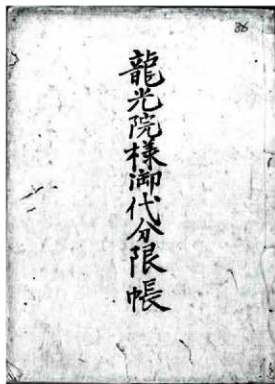 36
龍光院様御代分限帳